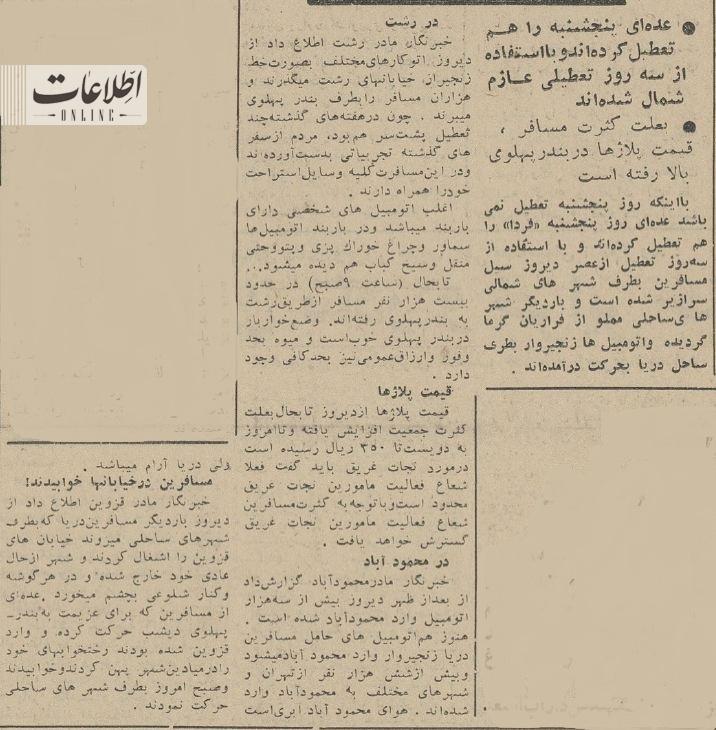 اطلاعات
ONLINE
● عده‌ای پنجشنبه را هم
تعطیل کرده‌اند و بااستفاده
از سه روز تعطیلی عازم
شمال شده‌اند
● بعلت کثرت مسافر ،
قیمت پلاژها در بندر پهلوی
بالا رفته است
بااینکه روز پنجشنبه تعطیل نمی
باشد عده‌ای روز پنجشنبه «فردا» را
هم تعطیل کرده‌اند و با استفاده از
سه‌روز تعطیل ازعصر دیروز سیل
مسافرین بطرف شهر های شمالی
سرازیر شده است و باردیگر شهر
ها ی‌ساحلی مملو از فراریان گرما
گردیده واتومبیل ها زنجیروار بطرف
ساحل دریا بحرکت درآمده‌اند .
در رشت
خبرنگار مادر رشت اطلاع داد از
دیروز اتوکارهای‌مختلف بصورت‌خط
زنجیراز خیابانهای رشت میگذرند و
هزاران مسافر رابطرف بندر پهلوی
میبرند . چون درهفته‌های گذشته‌چند
تعطیل پشت‌سر هم‌بود، مردم ازسفر
های گذشته تجربیاتی بدست‌آورده‌اند
ودر این‌مسافرت‌کلیه وسایل‌استراحت
خودرا همراه دارند .
اغلب اتومبیل های شخصی دارای
باربند میباشد ودر باربند اتومبیل‌ها
سماور وچراغ خوراك پزی وپتووحتی
منقل وسیخ کباب هم دیده میشود...
تابحال (ساعت ۹صبح) در حدود
بیست هزار نفر مسافر ازطریق‌رشت
به بندرپهلوی رفته‌اند. وضع‌خواربار
دربندر پهلوی خوب‌است و میوه بحد
وفور وارزاق‌عمومی‌نیز بحدکافی وجود
دارد .
قیمت پلاژها
قیمت پلاژها ازدیروز تابحال‌بعلت
کثرت جمعیت افزایش یافته وتاامروز
به دویست‌تا ۳۵۰ ریال رسیده است
درمورد نجات غریق باید گفت فعلا
شعاع فعالیت مامورین نجات غریق
محدود است‌وباتوجه‌به کثرت‌مسافرین
شعاع فعالیت مامورین نجات غریق
گسترش خواهد یافت .
در محمود آباد
خبرنگار مادرمحمودآباد گزارش‌داد
از بعداز ظهر دیروز بیش از سه‌هزار
اتومبیل وارد محمودآباد شده است .
هنوز هم‌اتومبیل های حامل مسافرین
دریا زنجیروار وارد محمود آبادمیشود
وبیش ازشش هزار نفر ازتهران و
شهرهای مختلف به محمودآباد وارد
شده‌اند . هوای محمود آباد ابری‌است
ولی دریا آرام میباشد .
مسافرین درخیابانها خوابیدند!
خبرنگار مادر قزوین اطلاع داد از
دیروز باردیگر مسافرین‌دریا که‌بطرف
شهرهای ساحلی میروند خیابان های
قزوین را اشغال کردند و شهر ازحال
عادی خود خارج شده و در هرگوشه
وکنار شلوغی بچشم میخورد .عده‌ای
از مسافرین که برای عزیمت به‌بندر_
پهلوی دیشب حرکت کرده و وارد
قزوین شده بودند رختخوابهای خود
رادرمیادین‌شهر پهن کردندوخوابیدند
وصبح امروز بطرف شهر های ساحلی
حرکت نمودند .